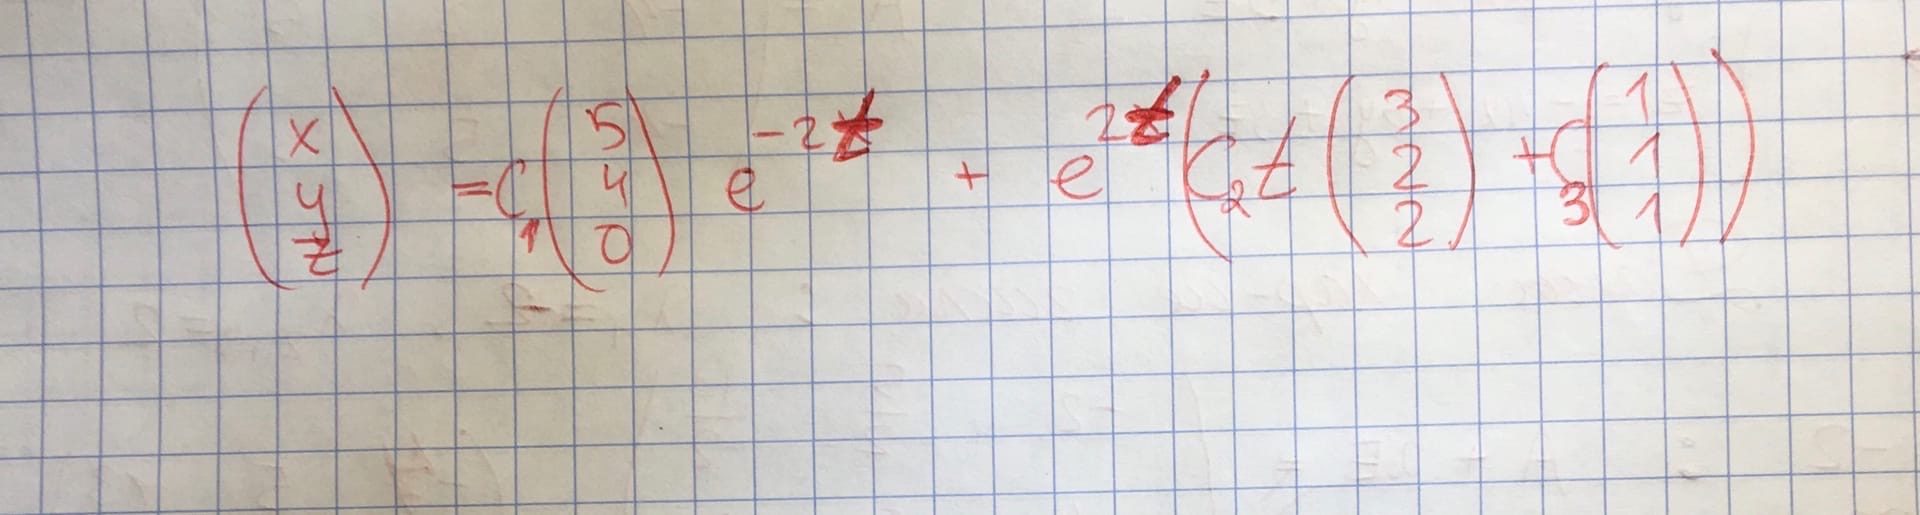 (x y z) = C₁ (5 4 0) e^{-2t} + e^{2t} (C₂ t (3 2 2) + C₃ (1 1 1))